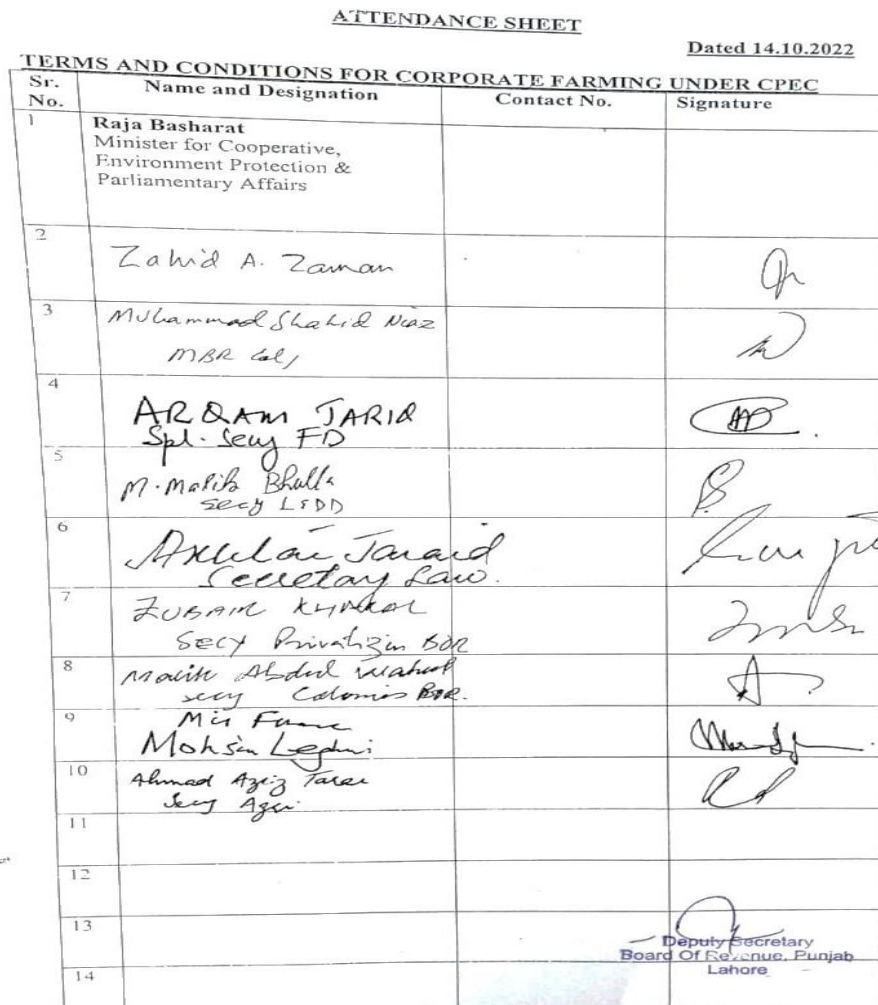 ATTENDANCE SHEET
Dated 14.10.2022
TERMS AND CONDITIONS FOR CORPORATE FARMING UNDER CPEC
Sr. No. Name and Designation Contact No. Signature
1 Raja Basharat
Minister for Cooperative,
Environment Protection &
Parliamentary Affairs
2 Zahid A. Zaman
3 Muhammad Shahid Niaz
MBR Col,
4 ARQAM TARIQ
Spl. Secy FD
5 M. Malik Bhulla
Secy L&DD
6 Akhtar Javaid
Secretary Law.
7 ZUBAIR
Secy BOR
8 Malik Abdul Waheed
secy Colonies BOR.
9
Mohsin Leghari
10 Ahmad Aziz Tarar
Secy Agri
11
12
13
Deputy Secretary
Board Of Revenue, Punjab
Lahore
14